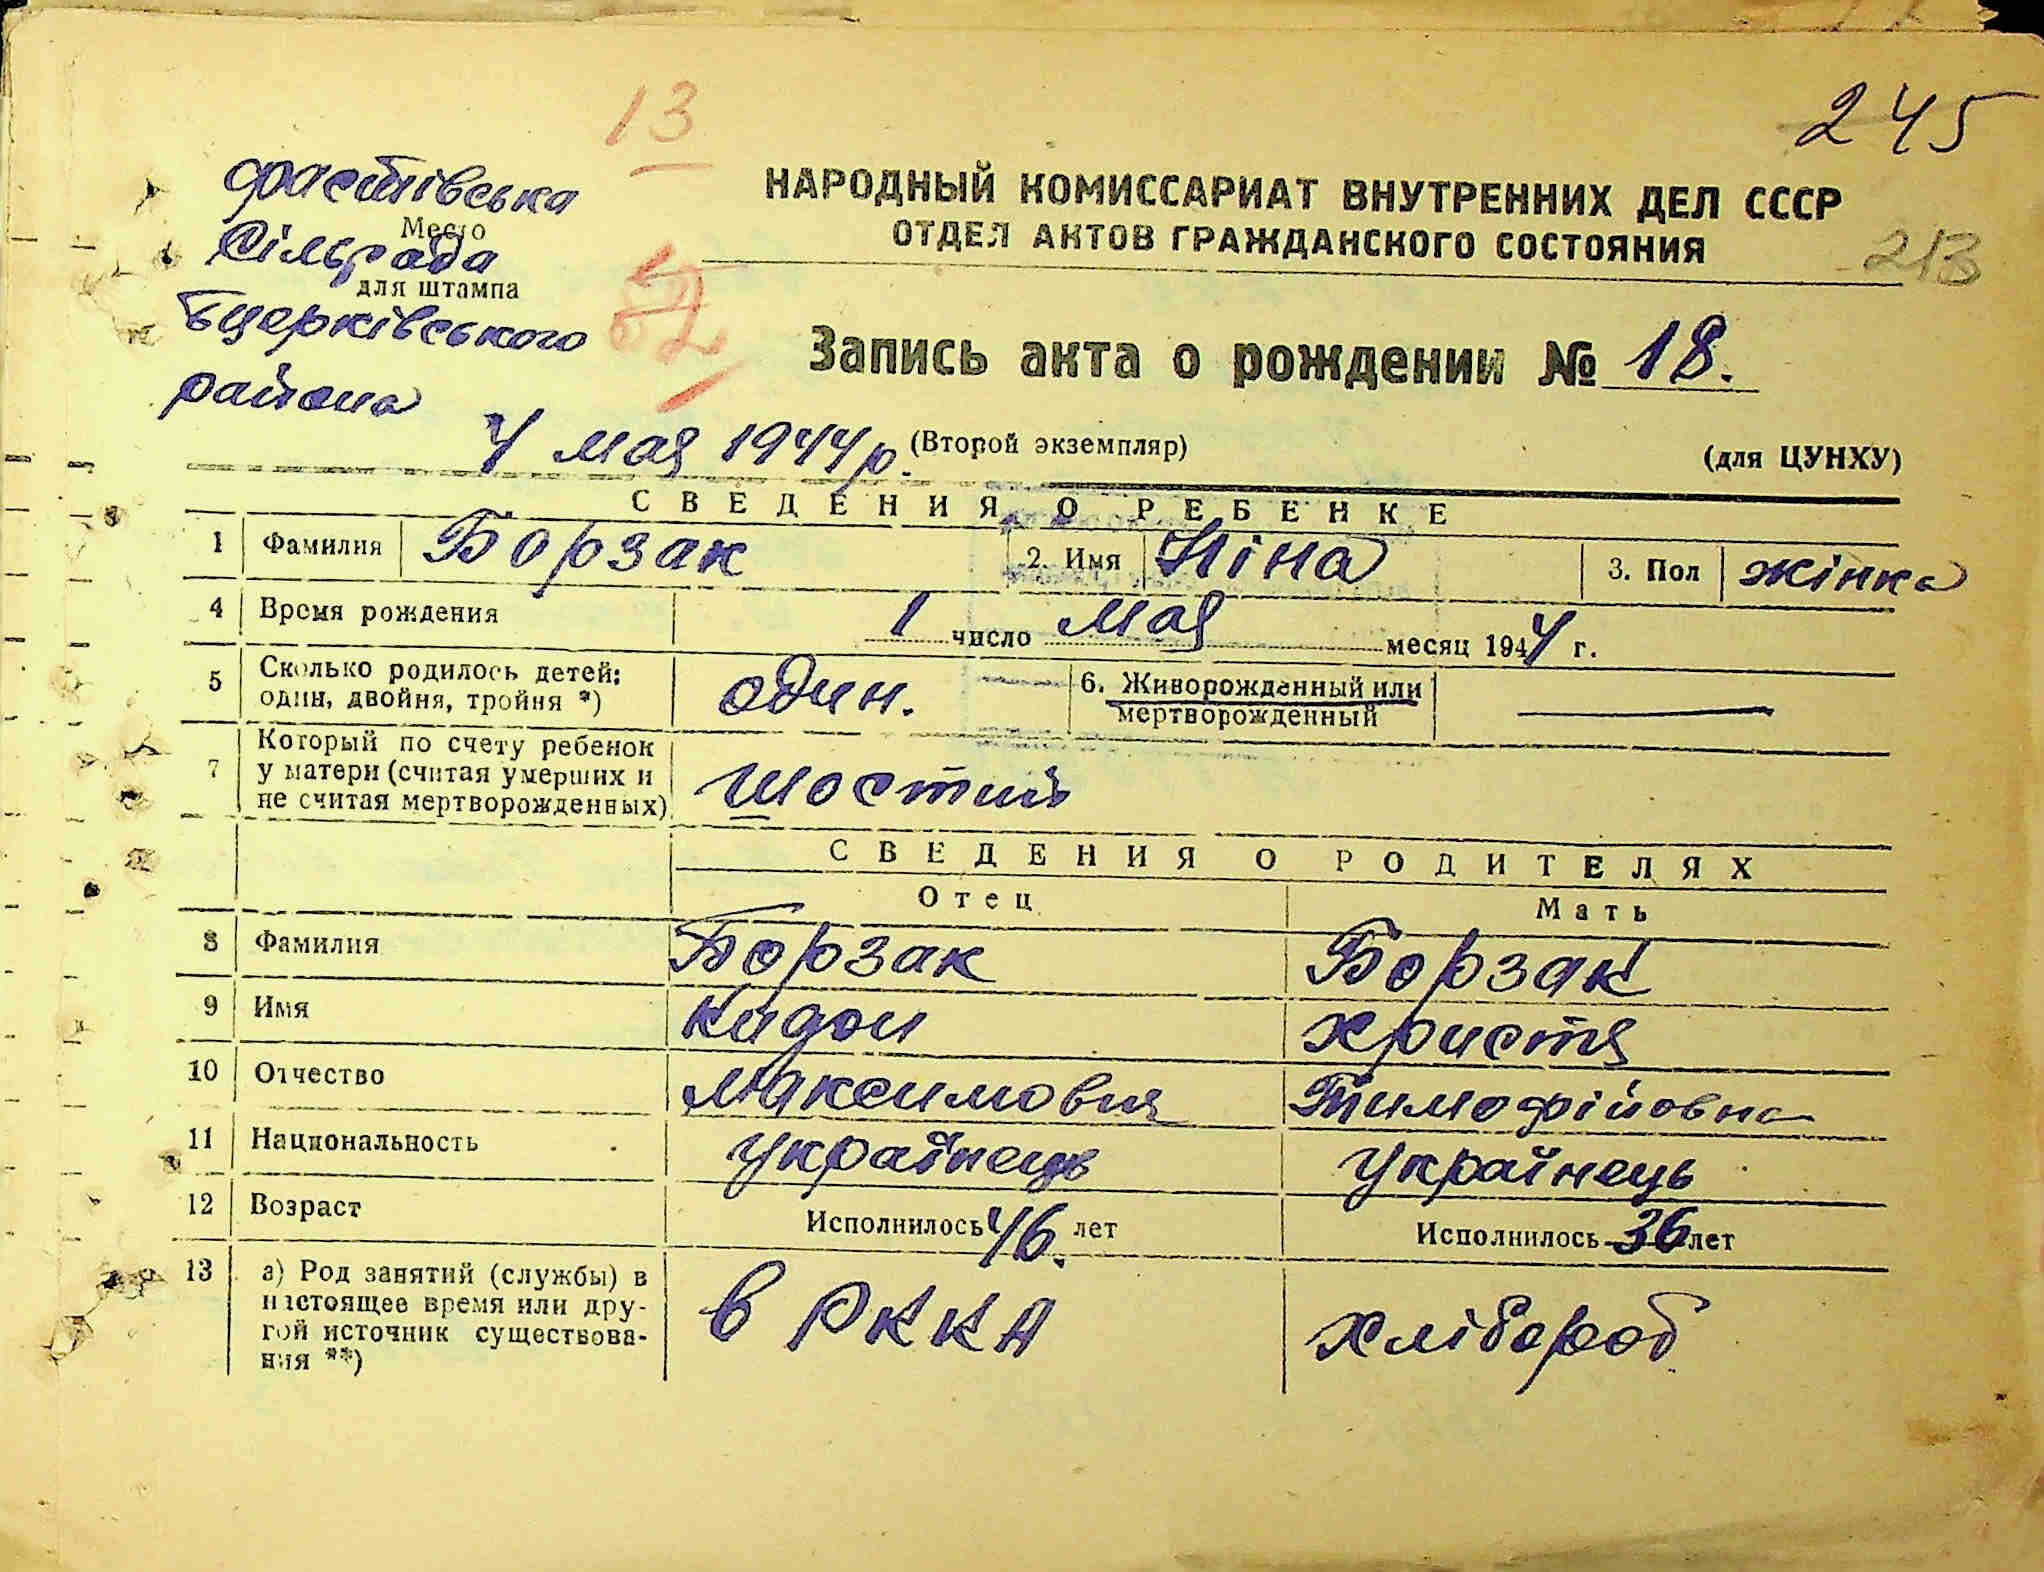 13
245
Фастівська
Место
Сільрада
для штампа
Бцерківського
района
НАРОДНЫЙ КОМИССАРИАТ ВНУТРЕННИХ ДЕЛ СССР
ОТДЕЛ АКТОВ ГРАЖДАНСКОГО СОСТОЯНИЯ
213
Запись акта о рождении № 18.
4 мая 1944 р. (Второй экземпляр) (для ЦУНХУ)
СВЕДЕНИЯ О РЕБЕНКЕ
1 Фамилия Борзак 2. Имя Ніна 3. Пол жінка
4 Время рождения 1 число мая месяц 1944 г.
5 Сколько родилось детей: один, двойня, тройня *) один. 6. Живорожденный или мертворожденный
7 Который по счету ребенок
у матери (считая умерших и
не считая мертворожденных) шостий
СВЕДЕНИЯ О РОДИТЕЛЯХ
Отец Мать
8 Фамилия Борзак Борзак
9 Имя Кидон Христя
10 Отчество Максимович Тимофійовна
11 Национальность Українець Українець
12 Возраст Исполнилось 46. лет Исполнилось 36 лет
13 а) Род занятий (службы) в
настоящее время или дру-
гой источник существова-
ния **) в РККА хлібороб